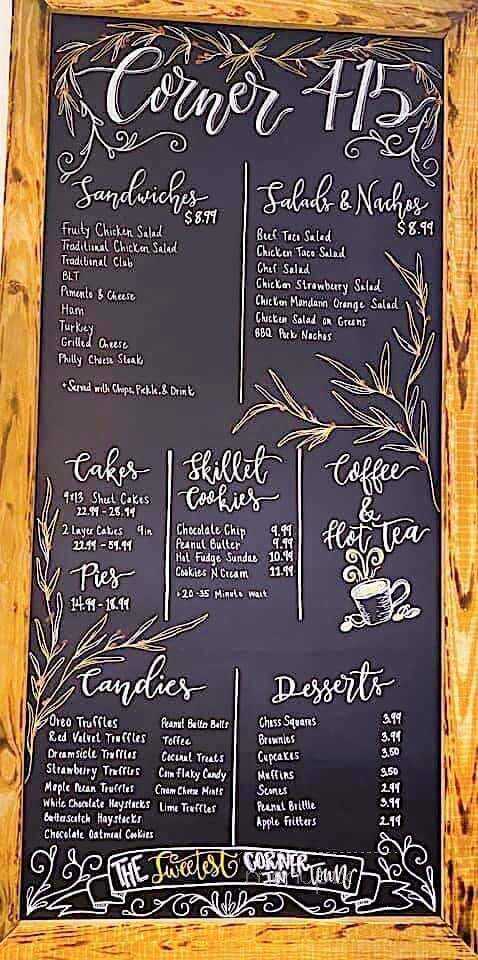 Corner 415
Sandwiches
$8.99
Fruity Chicken Salad
Traditional Chicken Salad
Traditional Club
BLT
Pimento & Cheese
Ham
Turkey
Grilled Cheese
Philly Cheese Steak
* Served with Chips, Pickle, & Drink
Salads & Nachos
$8.99
Beef Taco Salad
Chicken Taco Salad
Chef Salad
Chicken Strawberry Salad
Chicken Mandarin Orange Salad
Chicken Salad on Greens
BBQ Pork Nachos
Cakes
9x13 Sheet Cakes
22.99 - 28.99
2 Layer Cakes 9in
22.99 - 59.99
Pies
14.99 - 18.99
Skillet
Cookies
Chocolate Chip 9.99
Peanut Butter 9.99
Hot Fudge Sundae 10.99
Cookies N Cream 11.99
* 20-35 Minute wait
Coffee
&
Hot Tea
Candies
Oreo Truffles
Red Velvet Truffles
Dreamsicle Truffles
Strawberry Truffles
Maple Pecan Truffles
White Chocolate Haystacks
Butterscotch Haystacks
Chocolate Oatmeal Cookies
Peanut Butter Balls
Toffee
Coconut Treats
Cornflaky Candy
Cream Cheese Mints
Lime Truffles
Desserts
Chess Squares 3.99
Brownies 3.99
Cupcakes 3.50
Muffins 3.50
Scones 2.99
Peanut Brittle 3.99
Apple Fritters 2.99
THE Sweetest CORNER IN TOWN